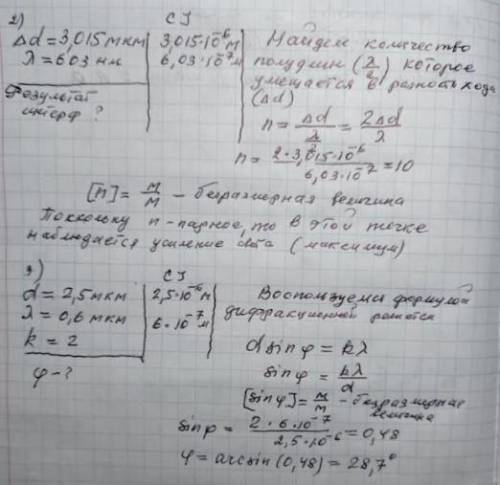 2)
СІ
Δd = 3,015 мкм
3,015·10⁻⁶ м
λ = 603 нм
6,03·10⁻⁷ м
Результат
интерф ?
Найдем количество
полудлин (λ/2) которое
умещается в разность хода
(Δd)
n = Δd / (λ/2) = 2Δd / λ
n = 2·3,015·10⁻⁶ / 6,03·10⁻⁷ = 10
[n] = м/м – безразмерная величина
Поскольку n – парное, то в этой точке
наблюдается усиление света (максимум)
3)
СІ
d = 2,5 мкм
2,5·10⁻⁶ м
λ = 0,6 мкм
6·10⁻⁷ м
k = 2
φ – ?
Воспользуемся формулой
дифракционной решетки
d sin φ = kλ
sin φ = kλ / d
[sin φ] = м/м – безразмерная
величина
sin φ = 2·6·10⁻⁷ / 2,5·10⁻⁶ = 0,48
φ = arcsin (0,48) = 28,7°